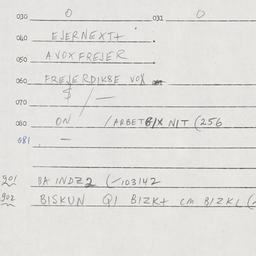 030 0 031 0
040 EJERNEXT+
050 AVOXFREJER
060 FREJERDIKSE VOX
070 $ / —
080 ON /ARBET NIT (256
081 —
901 BA INDZ2 (-103142
902 BISKUN QI BIZK+ CM BIZKL (